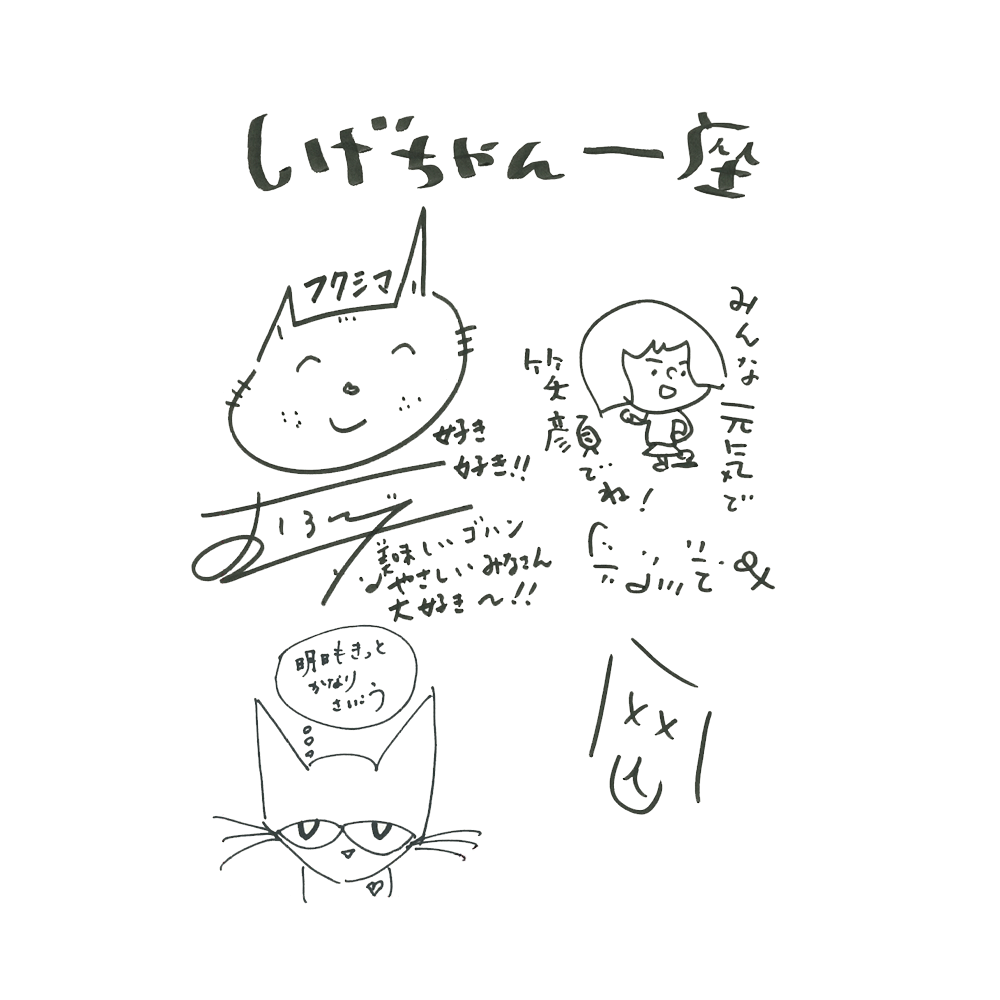 しげちゃん一座
フクシマ
好き
好き!!
美味しいゴハン
やさしいみなさん
大好き〜!!
みんな元気で
笑顔でね!
明日もきっと
かなり
さいこう